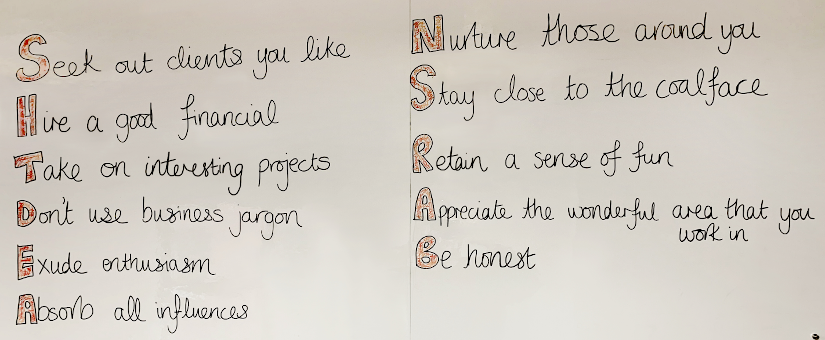 Seek out clients you like
Hire a good financial
Take on interesting projects
Don't use business jargon
Exude enthusiasm
Absorb all influences
Nurture those around you
Stay close to the coalface
Retain a sense of fun
Appreciate the wonderful area that you
work in
Be honest